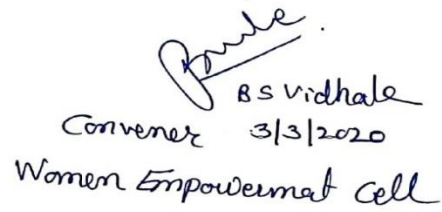 B S Vidhale
Convener 3/3/2020
Women Empowermat Cell